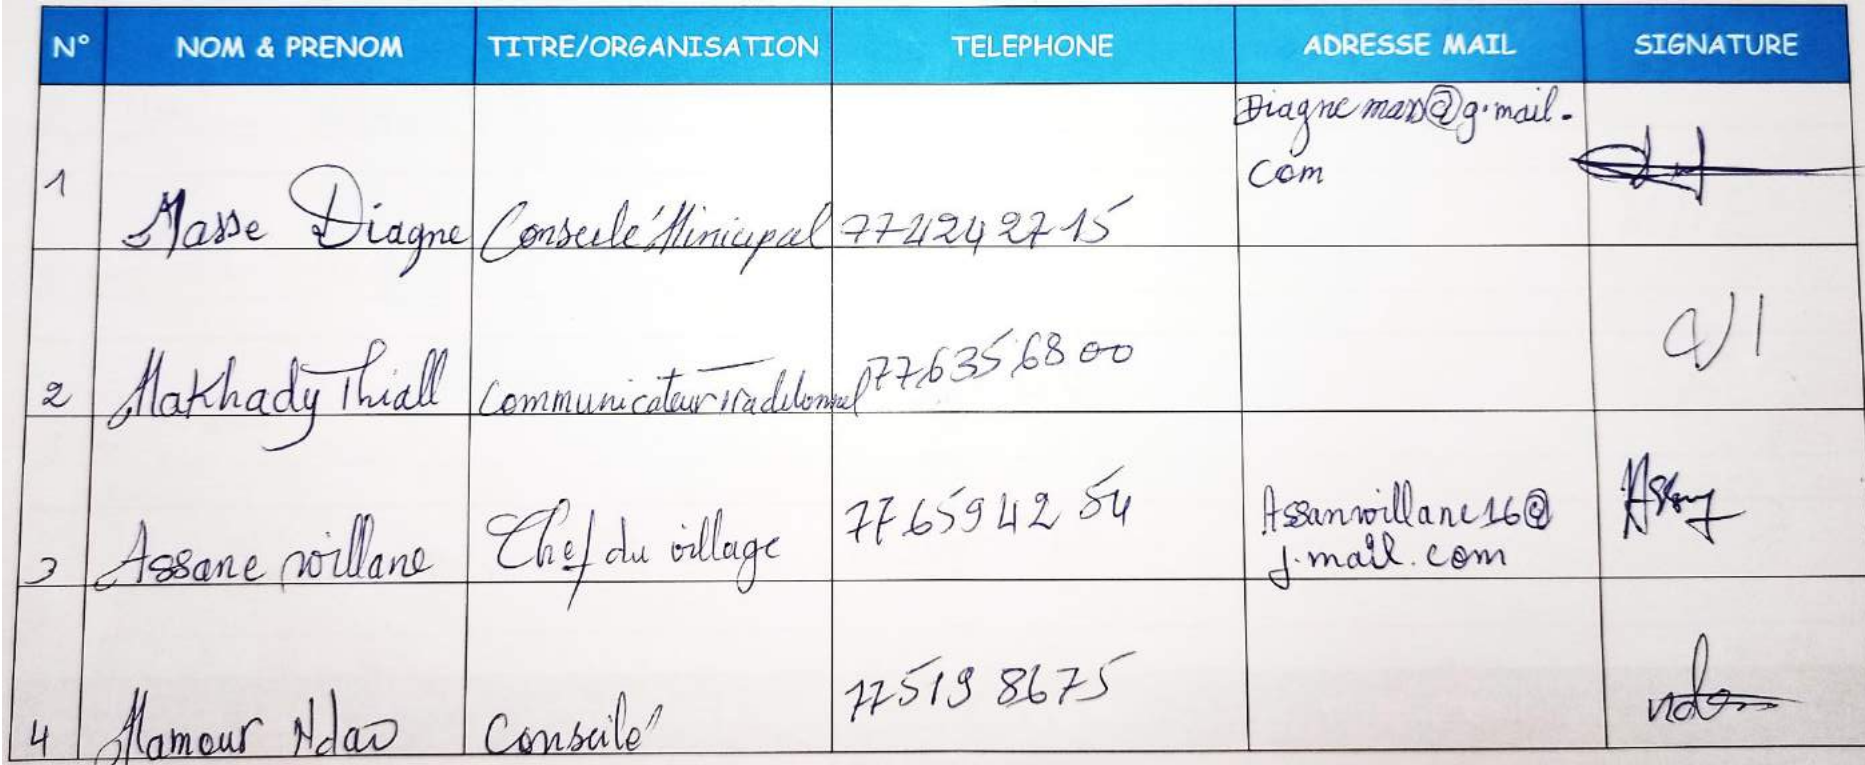 N° NOM & PRENOM TITRE/ORGANISATION TELEPHONE ADRESSE MAIL SIGNATURE
Diagne mass@g.mail.
com
1 Masse Diagne Conseilé Minicipal 77 424 27 15
2 Makhady Thiall Communicateur Traditionnel 77 635 68 00
3 Assane villane Chef du village 77 659 42 54 Assanvillane16@
j.mail.com
4 Mamour Ndao Conseilé 77 519 8675